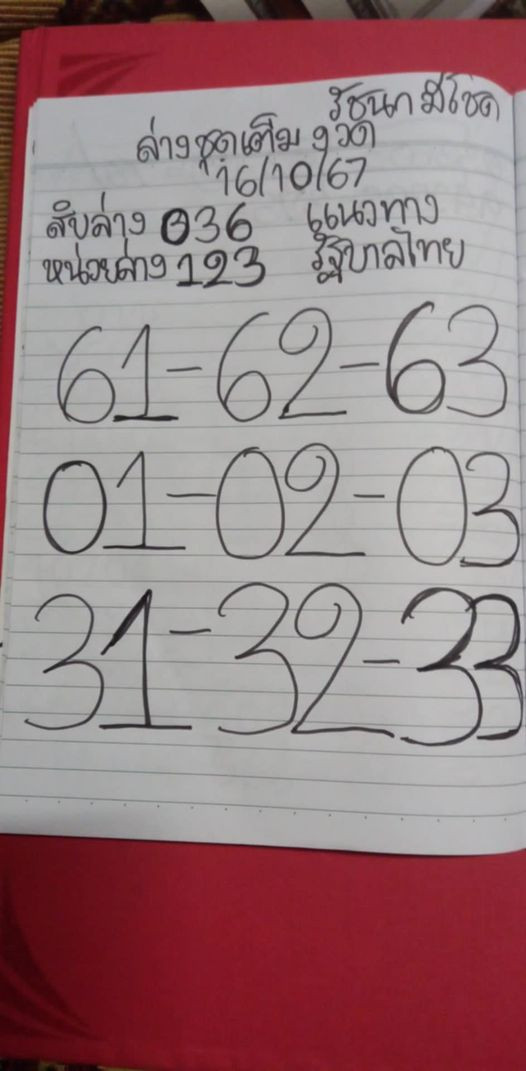 รัชนก มีโชค
ล่างชุดเต็ม งวด
16/10/67
สิบล่าง 036 แนวทาง
หน่วยล่าง 123 รัฐบาลไทย
61-62-63
01-02-03
31-32-33